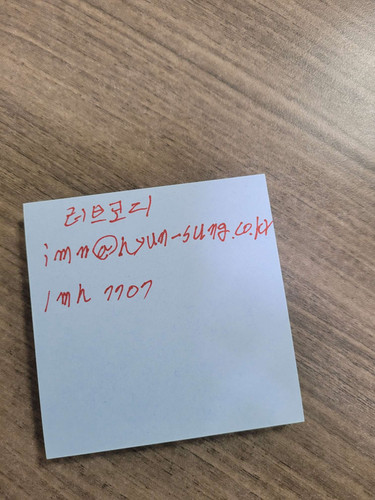 러브로디
imn@hyun-sung.co.kr
imh 7707